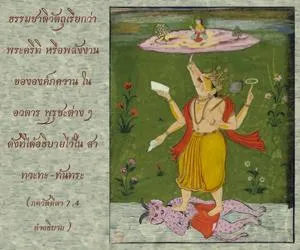 ธรรมชาติวัตถุเรียกว่า
พระคริทิ หรือพลังงาน
ขององค์ภควาน ใน
อวตาร พุรุชะต่างๆ
ดังที่ได้อธิบายไว้ใน สา
ทวะทะ -ทันทระ
( ภควัตคีตา 7.4
คำอธิบาย )